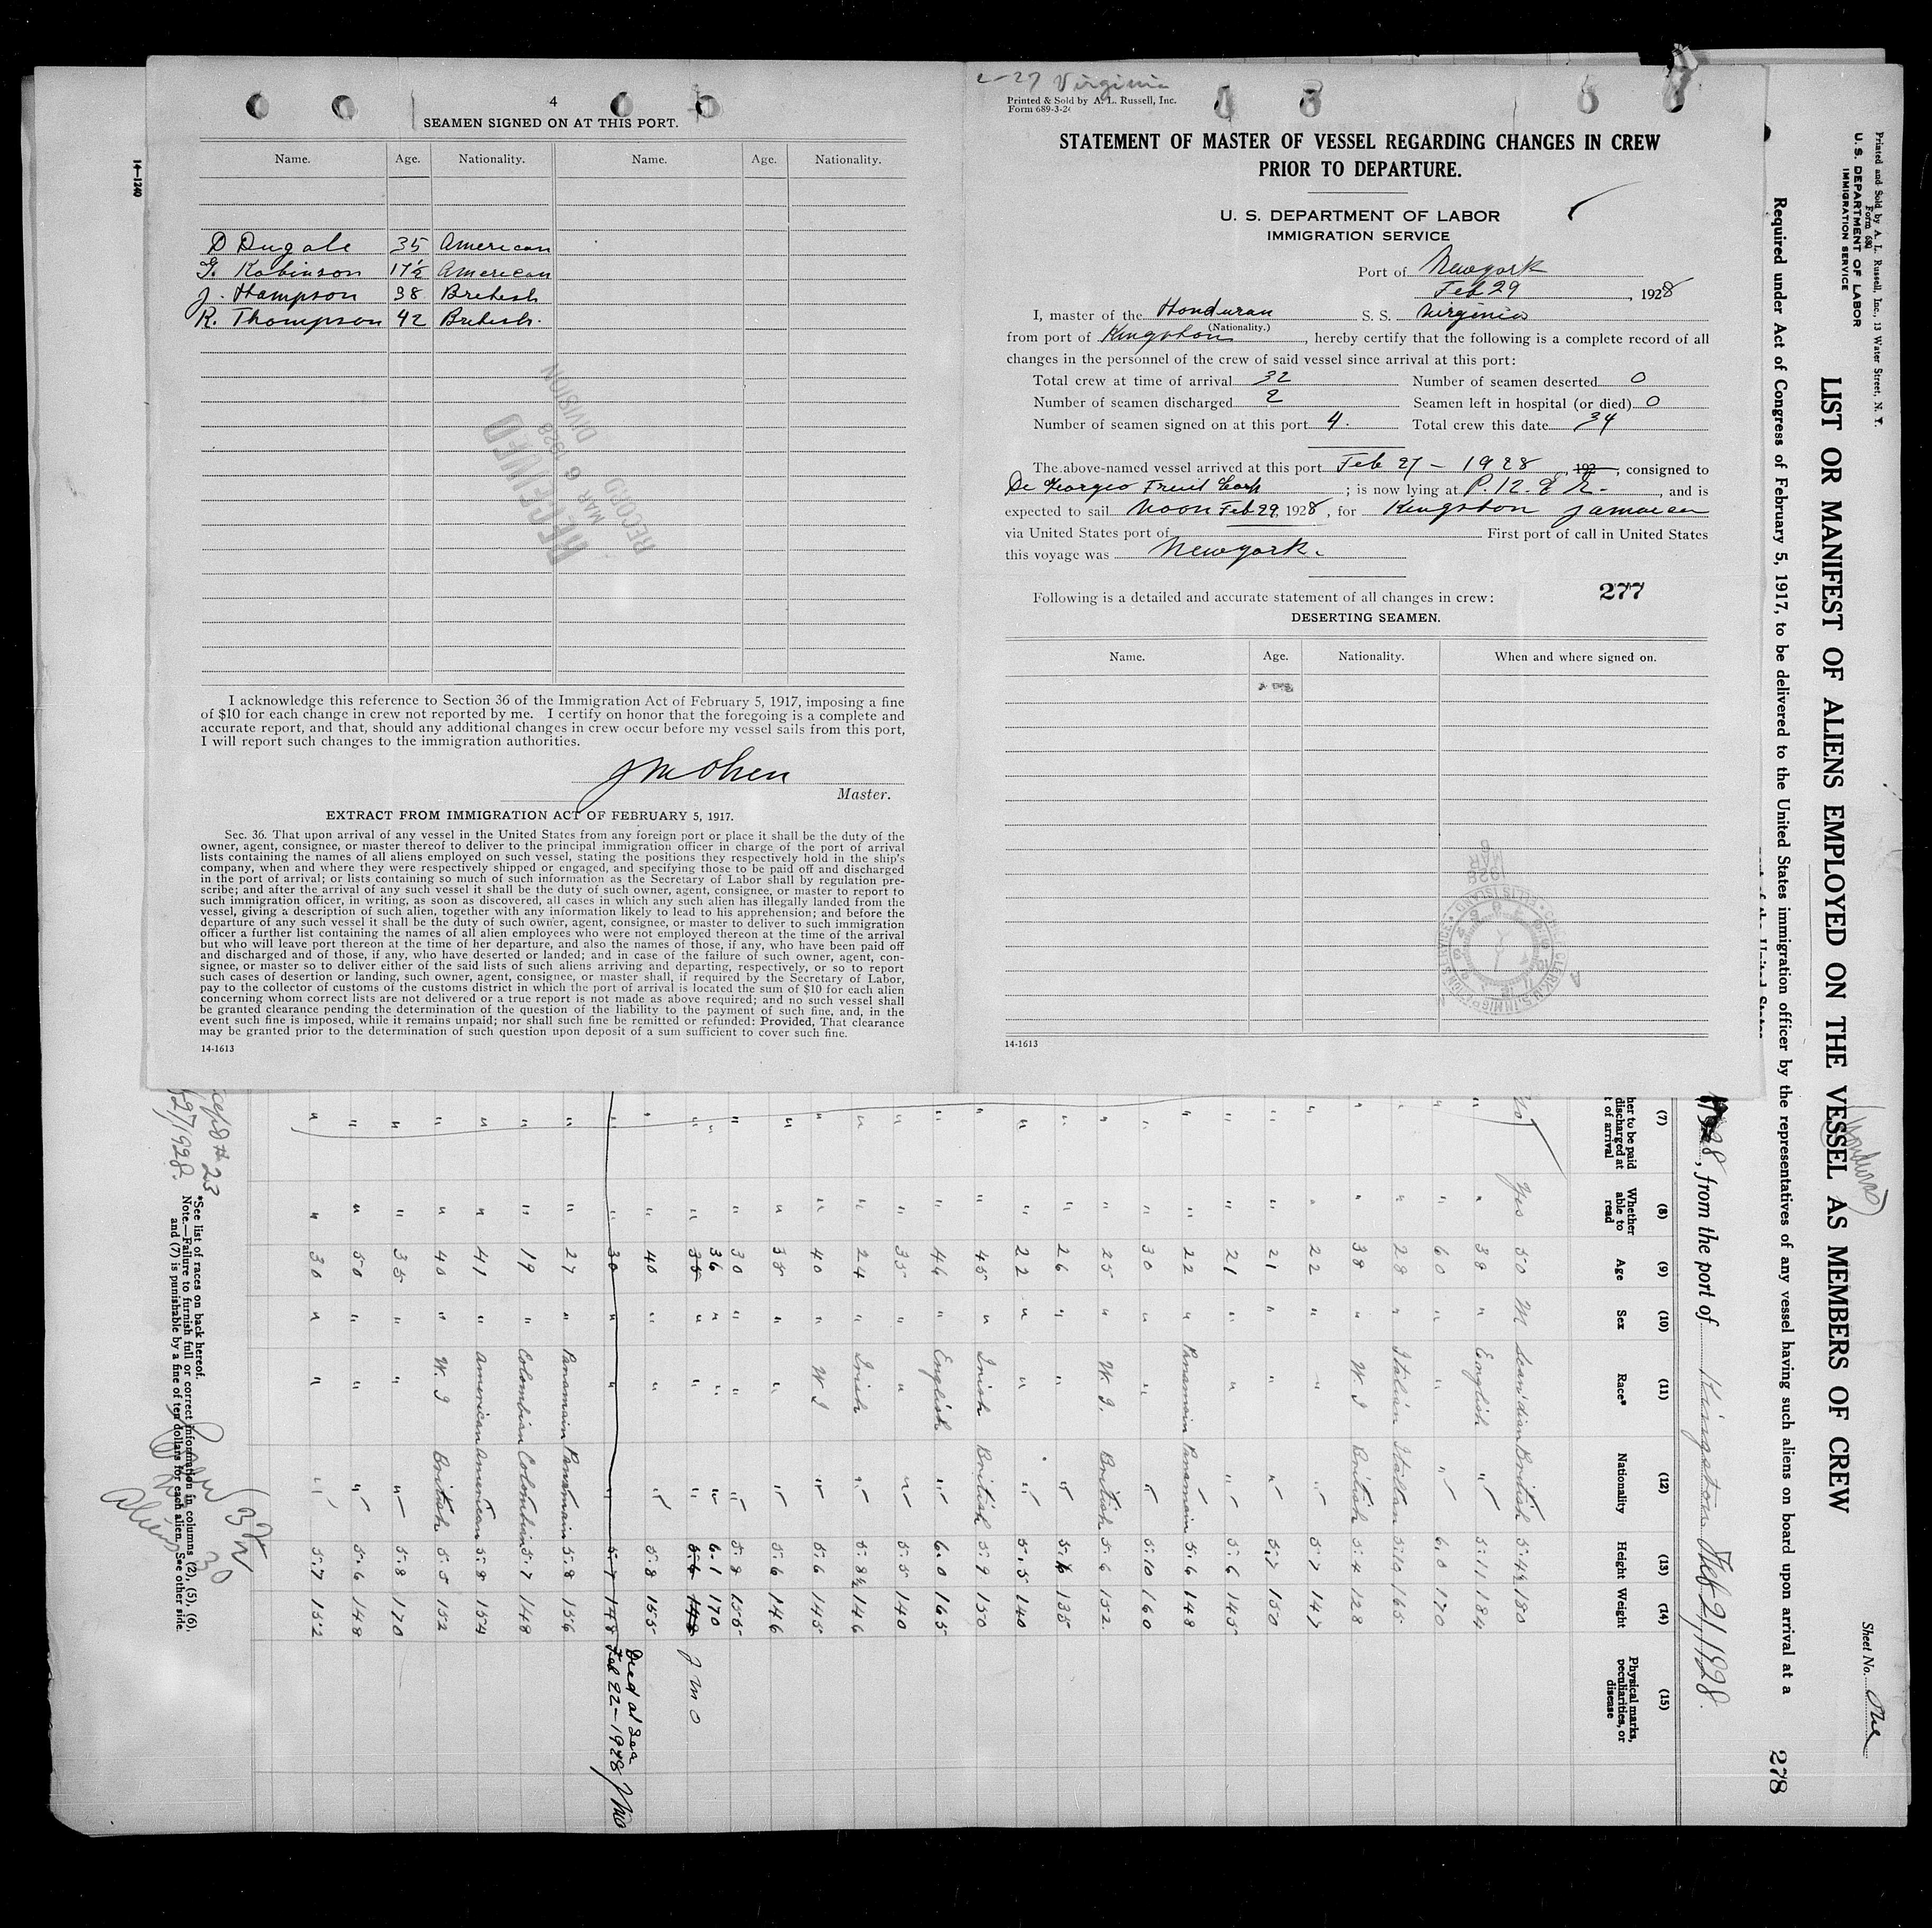 4
SEAMEN SIGNED ON AT THIS PORT.
Name. Age. Nationality. Name. Age. Nationality.
D Dugale 35 American
G. Robinson 17½ American
J. Hampson 38 British
R. Thompson 42 British.
RECEIVED
MAR 6 1928
RECORD DIVISION
I acknowledge this reference to Section 36 of the Immigration Act of February 5, 1917, imposing a fine
of $10 for each change in crew not reported by me. I certify on honor that the foregoing is a complete and
accurate report, and that, should any additional changes in crew occur before my vessel sails from this port,
I will report such changes to the immigration authorities.
Master.
EXTRACT FROM IMMIGRATION ACT OF FEBRUARY 5, 1917.
Sec. 36. That upon arrival of any vessel in the United States from any foreign port or place it shall be the duty of the
owner, agent, consignee, or master thereof to deliver to the principal immigration officer in charge of the port of arrival
lists containing the names of all aliens employed on such vessel, stating the positions they respectively hold in the ship's
company, when and where they were respectively shipped or engaged, and specifying those to be paid off and discharged
in the port of arrival; or lists containing so much of such information as the Secretary of Labor shall by regulation pre-
scribe; and after the arrival of any such vessel it shall be the duty of such owner, agent, consignee, or master to report to
such immigration officer, in writing, as soon as discovered, all cases in which any such alien has illegally landed from the
vessel, giving a description of such alien, together with any information likely to lead to his apprehension; and before the
departure of any such vessel it shall be the duty of such owner, agent, consignee, or master to deliver to such immigration
officer a further list containing the names of all alien employees who were not employed thereon at the time of the arrival
but who will leave port thereon at the time of her departure, and also the names of those, if any, who have been paid off
and discharged and of those, if any, who have deserted or landed; and in case of the failure of such owner, agent, con-
signee, or master so to deliver either of the said lists of such aliens arriving and departing, respectively, or so to report
such cases of desertion or landing, such owner, agent, consignee, or master shall, if required by the Secretary of Labor,
pay to the collector of customs of the customs district in which the port of arrival is located the sum of $10 for each alien
concerning whom correct lists are not delivered or a true report is not made as above required; and no such vessel shall
be granted clearance pending the determination of the question of the liability to the payment of such fine, and, in the
event such fine is imposed, while it remains unpaid; nor shall such fine be remitted or refunded: Provided, That clearance
may be granted prior to the determination of such question upon deposit of a sum sufficient to cover such fine.
14-1613
2-27 Virginia
Printed & Sold by A. L. Russell, Inc.
Form 689-3-24
STATEMENT OF MASTER OF VESSEL REGARDING CHANGES IN CREW
PRIOR TO DEPARTURE.
U. S. DEPARTMENT OF LABOR
IMMIGRATION SERVICE
Port of Newyork
Feb 29, 1928
I, master of the Honduran S. S. Virginia
(Nationality.)
from port of Kingston, hereby certify that the following is a complete record of all
changes in the personnel of the crew of said vessel since arrival at this port:
Total crew at time of arrival 32 Number of seamen deserted 0
Number of seamen discharged 2 Seamen left in hospital (or died) 0
Number of seamen signed on at this port 4. Total crew this date 34
The above-named vessel arrived at this port Feb 27 - 1928, 192 , consigned to
De Georgeo Fruit Corp ; is now lying at P. 12. E R. , and is
expected to sail Noon Feb 29, 1928, for Kingston Jamaica
via United States port of First port of call in United States
this voyage was Newyork.
277
Following is a detailed and accurate statement of all changes in crew:
DESERTING SEAMEN.
Name. Age. Nationality. When and where signed on.
14-1613
14-1240
Printed and Sold by A. L. Russell, Inc., 13 Water Street, N. Y.
Form 680
U. S. DEPARTMENT OF LABOR
IMMIGRATION SERVICE
Sheet No. One
LIST OR MANIFEST OF ALIENS EMPLOYED ON THE VESSEL AS MEMBERS OF CREW
Required under Act of Congress of February 5, 1917, to be delivered to the United States immigration officer by the representatives of any vessel having such aliens on board upon arrival at a
278
port of the United States
1928, from the port of Kingston Feb 21/1928.
(7) (8) (9) (10) (11) (12) (13) (14) (15)
her to be paid discharged at t of arrival
Whether able to read
Age
Sex
Race*
Nationality
Height
Weight
Physical marks, peculiarities, or disease
No Yes 50 M Scan'dian British 5.4½ 180
" " 38 " English " 5.11 184
" " 60 " " " 6.0 170
" " 28 " Italian Italian 5.10 165
" " 38 " W I British 5.4 128
" " 22 " " " 5.7 147
" " 21 " " " 5.7 150
" " 21 " " " 5.6 145
" " 22 " Panamain Panamain 5.6 148
" " 30 " " " 5.10 160
" " 25 " W I. British 5.6 152
" " 26 " " " 5.6 135
" " 22 " " " 5.5 140
" " 45 " Irish British 5.9 150
" " 46 " English " 6.0 165
" " 35 " " " 5.5 140
" " 24 " Irish " 5.8½ 146
" " 40 " W I " 5.6 145
" " 35 " " " 5.6 146
" " 30 " " " 5.8 155
" " 36 " " " 6.1 170
" " 35 " " " 5.6 148 J M O
" " 40 " " " 5.8 155
" " 30 " " " 5.7 148 Died at Sea Feb 22-1928 JMO
" " 27 " Panamain Panamain 5.8 156
" " 19 " Colombian Colombian 5.7 148
" " 41 " American American 5.8 154
" " 40 " W. I British 5.5 152
" " 35 " " " 5.8 170
" " 50 " " " 5.6 148
" " 30 " " " 5.7 152
*See list of races on back hereof.
Note.—Failure to furnish full or correct information in columns (2), (5), (6),
and (7) is punishable by a fine of ten dollars for each alien. See other side.
30
Aliens